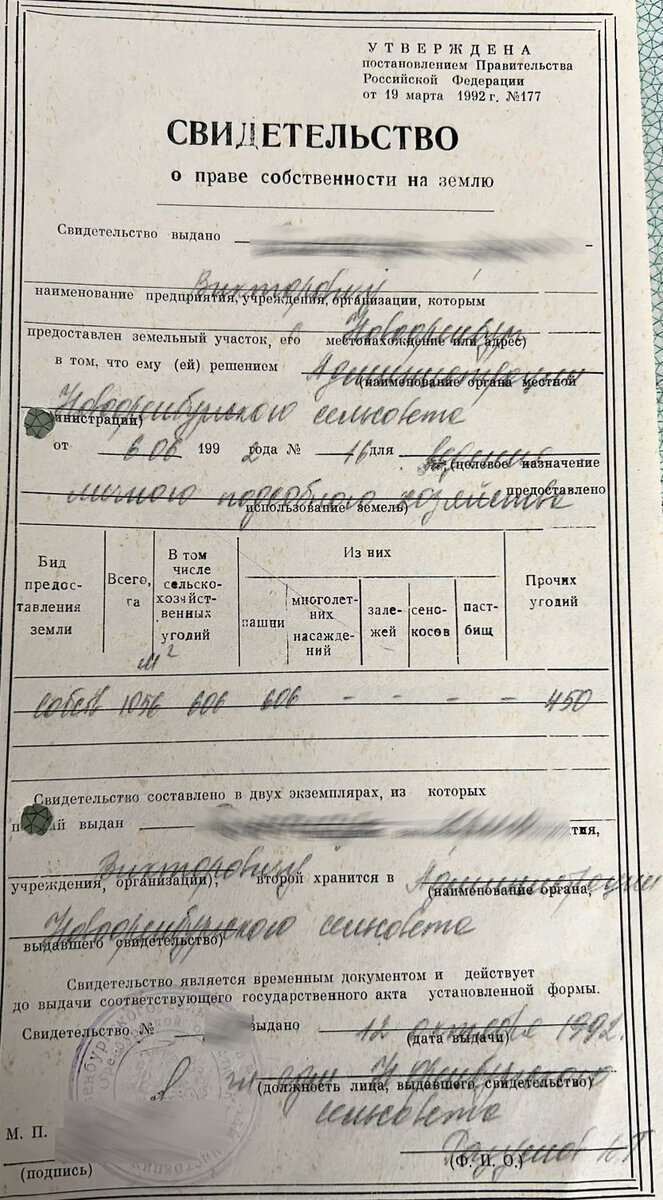 УТВЕРЖДЕНА
постановлением Правительства
Российской Федерации
от 19 марта 1992 г. №177
СВИДЕТЕЛЬСТВО
о праве собственности на землю
Свидетельство выдано
Викторовичу
наименование предприятия, учреждения, организации, которым
Новооренбург
предоставлен земельный участок, его местонахождение или адрес)
в том, что ему (ей) решением Администрации
(наименование органа местной
Новооренбургского сельсовета
министрации)
от 6 06 1992 года № 16 для ведения
(целевое назначение
личного подсобного хозяйства предоставлено
использование земель)
Вид предос-тавления земли
Всего, га
м²
В том числе сельско-хозяйст-венных угодий
Из них
пашни
многолет-них насажде-ний
зале-жей
сено-косов
паст-бищ
Прочих угодий
собств 1056 606 606 - - - - 450
Свидетельство составлено в двух экземплярах, из которых
выдан тия,
Викторовичу
учреждения, организации), второй хранится в Администрации
(наименование органа,
Новооренбургского сельсовета
выдавшего свидетельство)
Свидетельство является временным документом и действует
до выдачи соответствующего государственного акта установленной формы.
Свидетельство № выдано 12 октября 1992.
(дата выдачи)
(должность лица, выдавшего свидетельство)
сельсовета
М. П.
(подпись)
(Ф. И. О.)